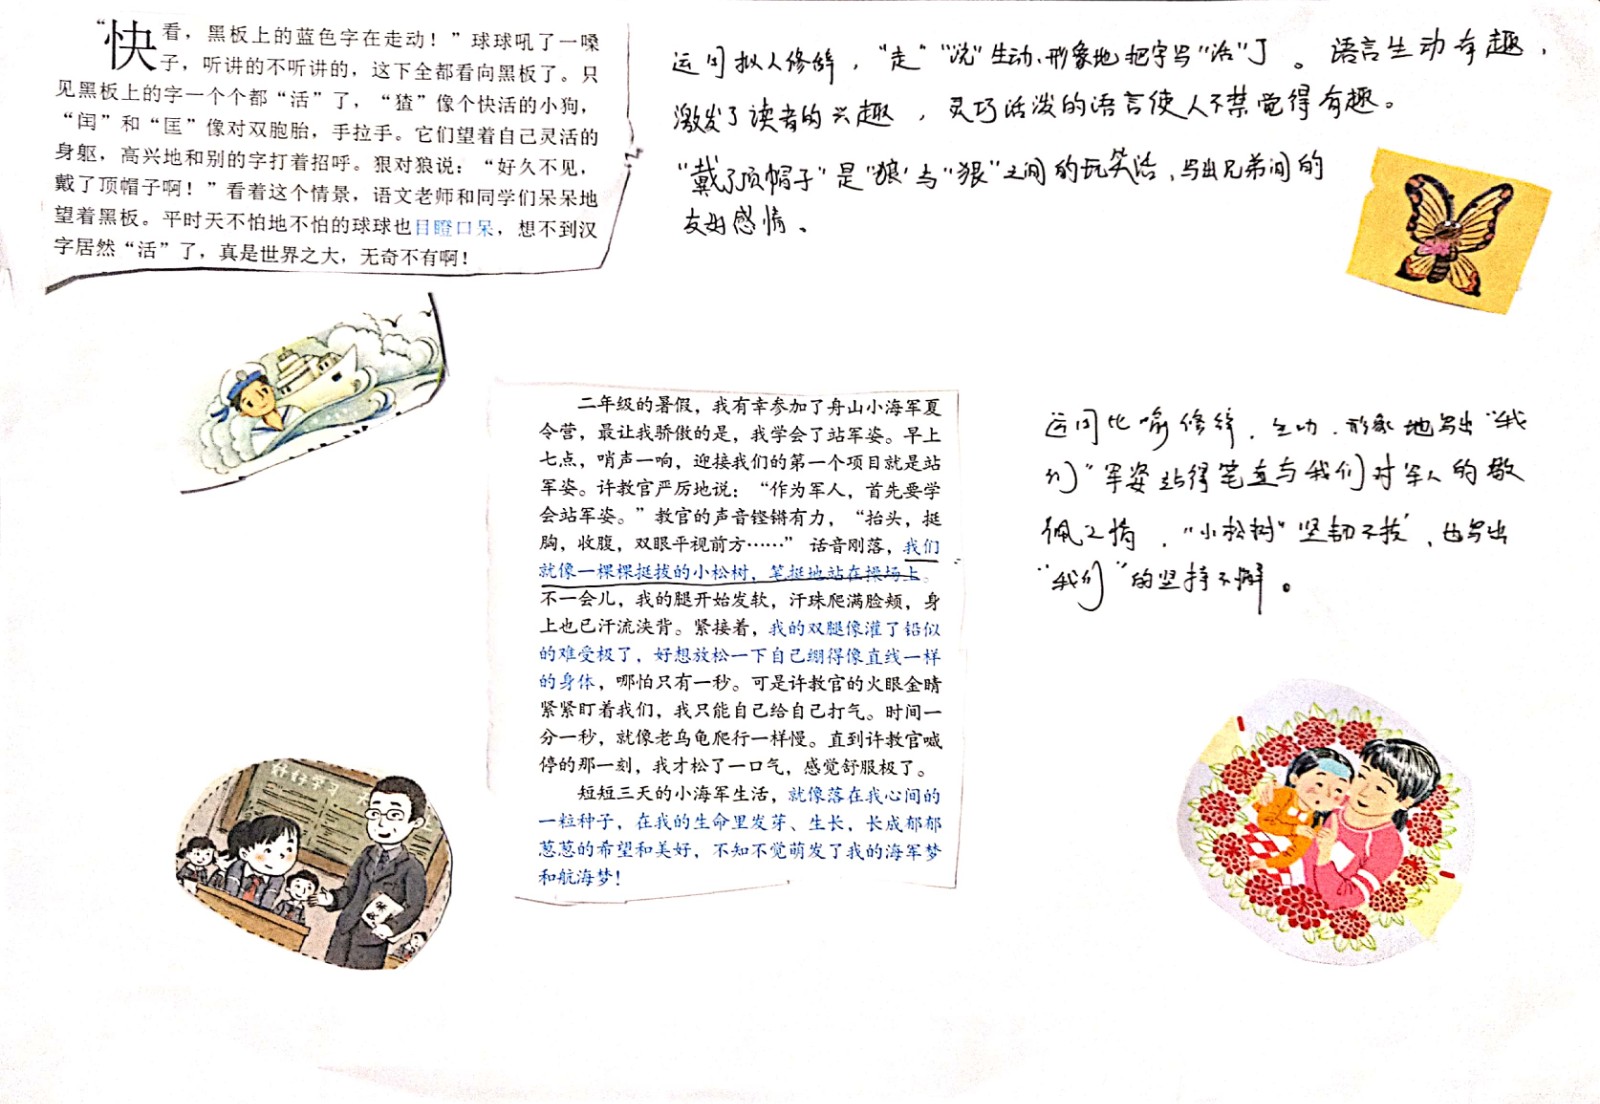 “快看，黑板上的蓝色字在走动！”球球吼了一嗓
子，听讲的不听讲的，这下全都看向黑板了。只
见黑板上的字一个个都“活”了，“猹”像个快活的小狗，
“闰”和“匡”像对双胞胎，手拉手。它们望着自己灵活的
身躯，高兴地和别的字打着招呼。狠对狼说：“好久不见，
戴了顶帽子啊！”看着这个情景，语文老师和同学们呆呆地
望着黑板。平时天不怕地不怕的球球也目瞪口呆，想不到汉
字居然“活”了，真是世界之大，无奇不有啊！
运用拟人修辞，“走”“说”生动、形象地把字写“活”了。语言生动有趣，
激发了读者的兴趣，灵巧活泼的语言使人不禁觉得有趣。
“戴了顶帽子”是“狼”与“狠”之间的玩笑话，写出兄弟间的
友好感情。
二年级的暑假，我有幸参加了舟山小海军夏
令营，最让我骄傲的是，我学会了站军姿。早上
七点，哨声一响，迎接我们的第一个项目就是站
军姿。许教官严厉地说：“作为军人，首先要学
会站军姿。”教官的声音铿锵有力，“抬头，挺
胸，收腹，双眼平视前方……”话音刚落，我们
就像一棵棵挺拔的小松树，笔挺地站在操场上。
不一会儿，我的腿开始发软，汗珠爬满脸颊，身
上也已汗流浃背。紧接着，我的双腿像灌了铅似
的难受极了，好想放松一下自己绷得像直线一样
的身体，哪怕只有一秒。可是许教官的火眼金睛
紧紧盯着我们，我只能自己给自己打气。时间一
分一秒，就像老乌龟爬行一样慢。直到许教官喊
停的那一刻，我才松了一口气，感觉舒服极了。
短短三天的小海军生活，就像落在我心间的
一粒种子，在我的生命里发芽、生长，长成郁郁
葱葱的希望和美好，不知不觉萌发了我的海军梦
和航海梦！
运用比喻修辞，生动、形象地写出“我
们”军姿站得笔直与我们对军人的敬
佩之情，“小松树”坚韧不拔，也写出
“我们”的坚持不懈。
好好学习